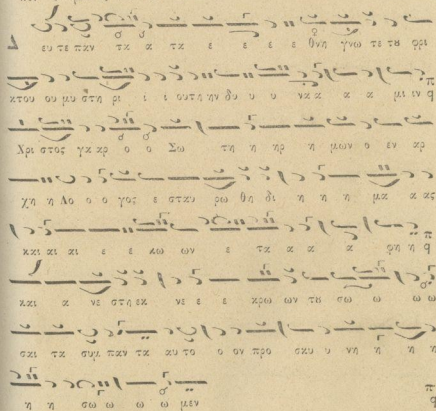 Δ ευ τε παν τα α τα ε ε ε ε θνη γνω τε τȣ φρι
κτου ου μυ στη ρι ι ι ου τη ην δυ υ υ να α α α μι ιν
Χρι στος γα αρ ο ο Σω τη η ηρ η μων ο εν αρ
χη η Λο ο ο γος ε σταυ ρω θη δι η η η μα α ας
και αι αι ε ε κω ων ε τα α α α φη η
και α νε στη εκ νε ε ε κρω ων τȣ σω ω ω ω
σαι τα συμ παν τα αυ το ο ον προ σκυ υ νη η η η
η η σω ω ω ω μεν